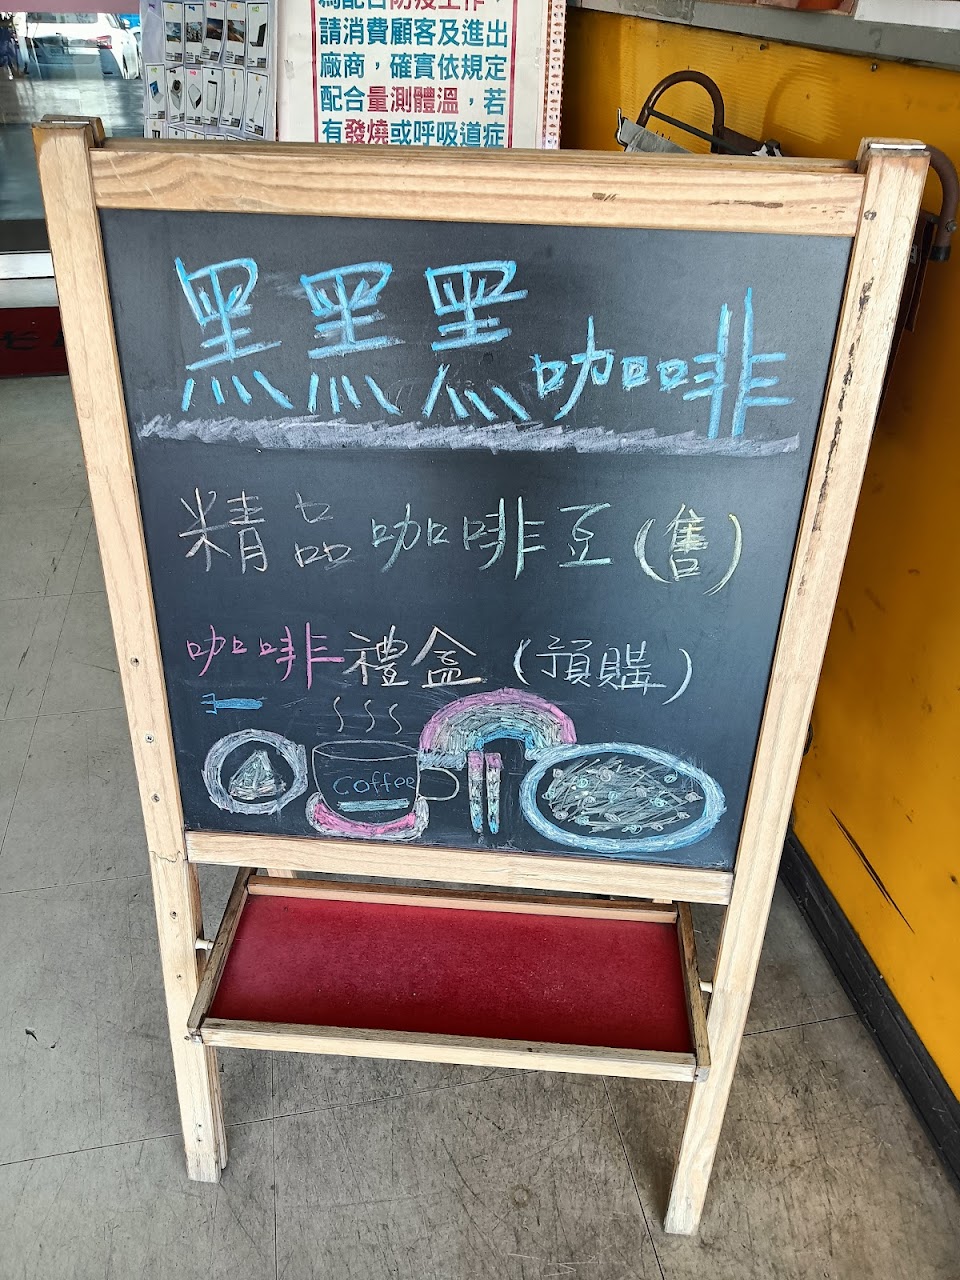 為配合防疫工作，
請消費顧客及進出
廠商，確實依規定
配合量測體溫，若
有發燒或呼吸道症
黑黑黑咖啡
精品咖啡豆(售)
咖啡禮盒(預購)
Coffee